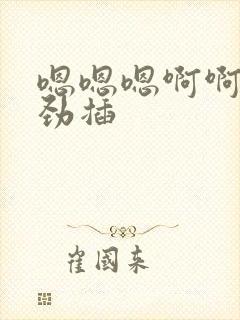 嗯嗯嗯啊啊
劲插
崔国来